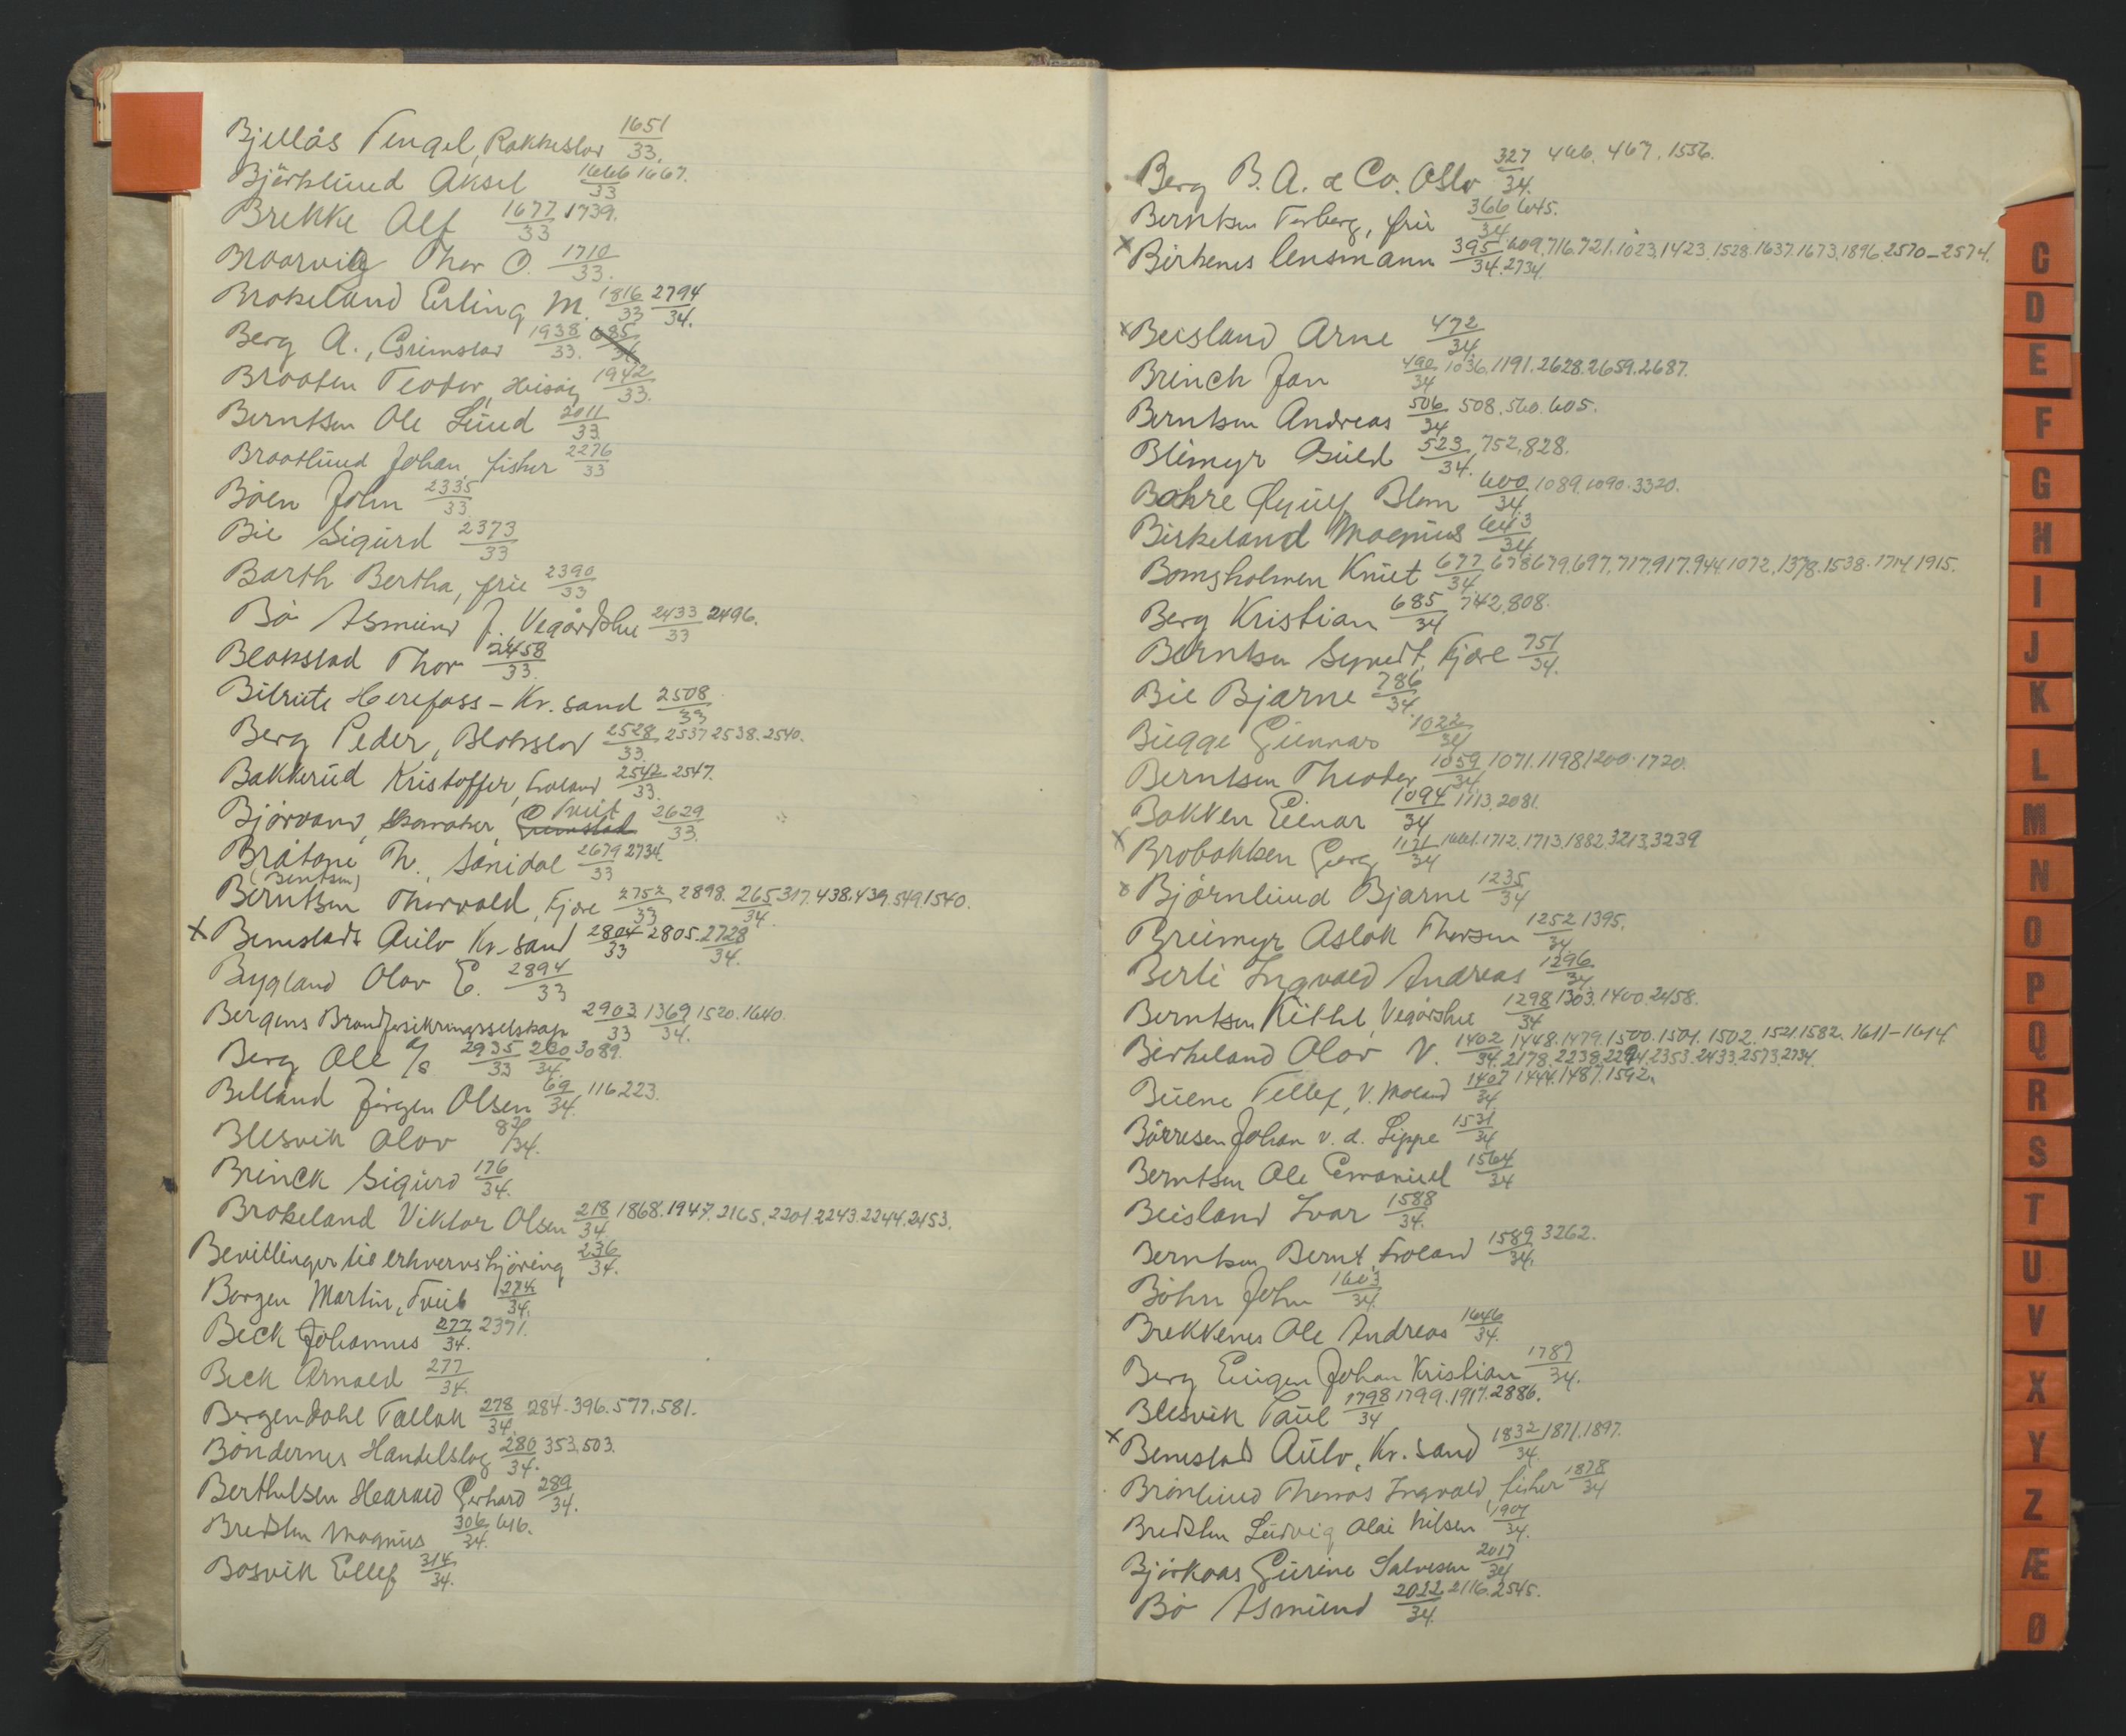 Bjellås Tengel, Rakkestad 1651/33.
Björklund Aksel 1666/33 1667.
Brekke Alf 1677/33 1739.
Braarvig Thor O. 1710/33.
Brokeland Erling M. 1816/33 2794/34.
Berg A., Grimstad 1938/33. 685/34
Braaten Teodor, Hisöy 1942/33.
Berntsen Ole Lund 2011/33
Braatlund Johan, fisker 2276/33
Böen John 2335/33
Bie Sigurd 2373/33
Barth Bertha, frue 2390/33
Bö Asmund J. Vegårdshei 2433/33 2496.
Blakstad Thor 2458/33.
Bilrute Herefoss - Kr.sand 2508/33
Berg Peder, Blakstad 2528/33. 2537 2538. 2540.
Bakkerud Kristoffer, Froland 2542/33. 2547.
Björvand, Tveit 2629/33.
Bråtane Th., Sanidal 2679/33 2734.
(Bentsen)
Berntsen Thorvald, Fjære 2752/33 2898. 265/34. 317. 438. 439. 549. 1540.
x Benestad Aulv Kr.sand 2804/33 2805. 2728/34.
Bygland Olav E. 2894/33
Bergens Brandforsikringsselskap 2903/33 1369/34. 1520. 1640.
Berg Ole A/S 2935/33 230/34. 3089.
Belland Jörgen Olsen 69/34. 116 223.
Blesvik Olav 82/34.
Brinck Sigurd 176/34.
Brokeland Viktor Olsen 218/34. 1868. 1947. 2165. 2201. 2243. 2244. 2453.
Bevillinger til erhvervskjöring 236/34.
Borgen Martin, Tveit 274/34.
Beck Johannes 277/34. 2371.
Beck Arnold 277/34.
Bergendahl Tallak 278/34. 284. 396. 577. 581.
Böndernes Handelslag 280/34. 353. 503.
Berthelsen Hearald Gerhard 289/34.
Bredsten Magnus 306/34. 616.
Bosvik Ellef 314/34.
Berg B. A. & Co. Oslo 327/34. 466. 467. 1556.
Berntsen Torborg, frue 366/34. 645.
x Birkenes lensmann 395/34. 609. 716. 721. 1023. 1423. 1528. 1637. 1673. 1896. 2570-2574.
2734.
x Beisland Arne 472/34.
Brinch Jan 490/34 1036. 1191. 2628. 2659. 2687.
Berntsen Andreas 506/34 508. 560. 605.
Blimyr Build 523/34. 752. 828.
Bakre Blom 600/34. 1089. 1090. 3320.
Birkeland Magnus 643/34
Bomsholmen Knut 677/34. 678 679. 697. 717. 917. 944. 1072. 1378. 1538. 1714 1915.
Berg Kristian 685/34 742. 808.
Berntsen Syvert, Fjære 751/34.
Bie Bjarne 786/34.
Bugge Gunnar 1022/34
Berntsen Theodor 1059/34. 1071. 1198 1200. 1720.
Bakken Einar 1094/34 1113. 2081.
x Brobakken Georg 1171/34 1661. 1712. 1713. 1882 3213. 3239
x Björnlund Bjarne 1235/34
Breimyr Aslak Thorsen 1252/34. 1395.
Berli Ingvald Andreas 1296/34.
Berntsen Kittel, Vegårshei 1298/34 1303. 1400. 2458.
Birkeland Olav V. 1402/34. 1448. 1479. 1500. 1501. 1502. 1521. 1582. 1611-1614
2178. 2238. 2294. 2353. 2433. 2573. 2734.
Buene Tellef, V. Moland 1407/34 1444. 1487. 1592.
Börresen Johan v. d. Lippe 1531/34
Berntsen Ole Emanuel 1564/34
Beisland Ivar 1588/34.
Berntsen Bernt, Froland 1589/34. 3262.
Böhn John 1603/34.
Brekkenes Ole Andreas 1646/34.
Berg Eugen Johan Kristian 1787/34.
Blesvik Paul 1798/34 1799. 1917. 2886.
x Benestad Aulv, Kr.sand 1832/34. 1871. 1897.
Brönlund Thomas Ingvald, fisker 1878/34
Bredsten Ludvig Olai Nilsen 1907/34.
Björkaas Gurine Salvesen 2017/34
Bö Asmund 2022/34. 2116. 2545.
C
D
E
F
G
H
I
J
K
L
M
N
O
P
Q
R
S
T
U
V
X
Y
Z
Æ
Ø